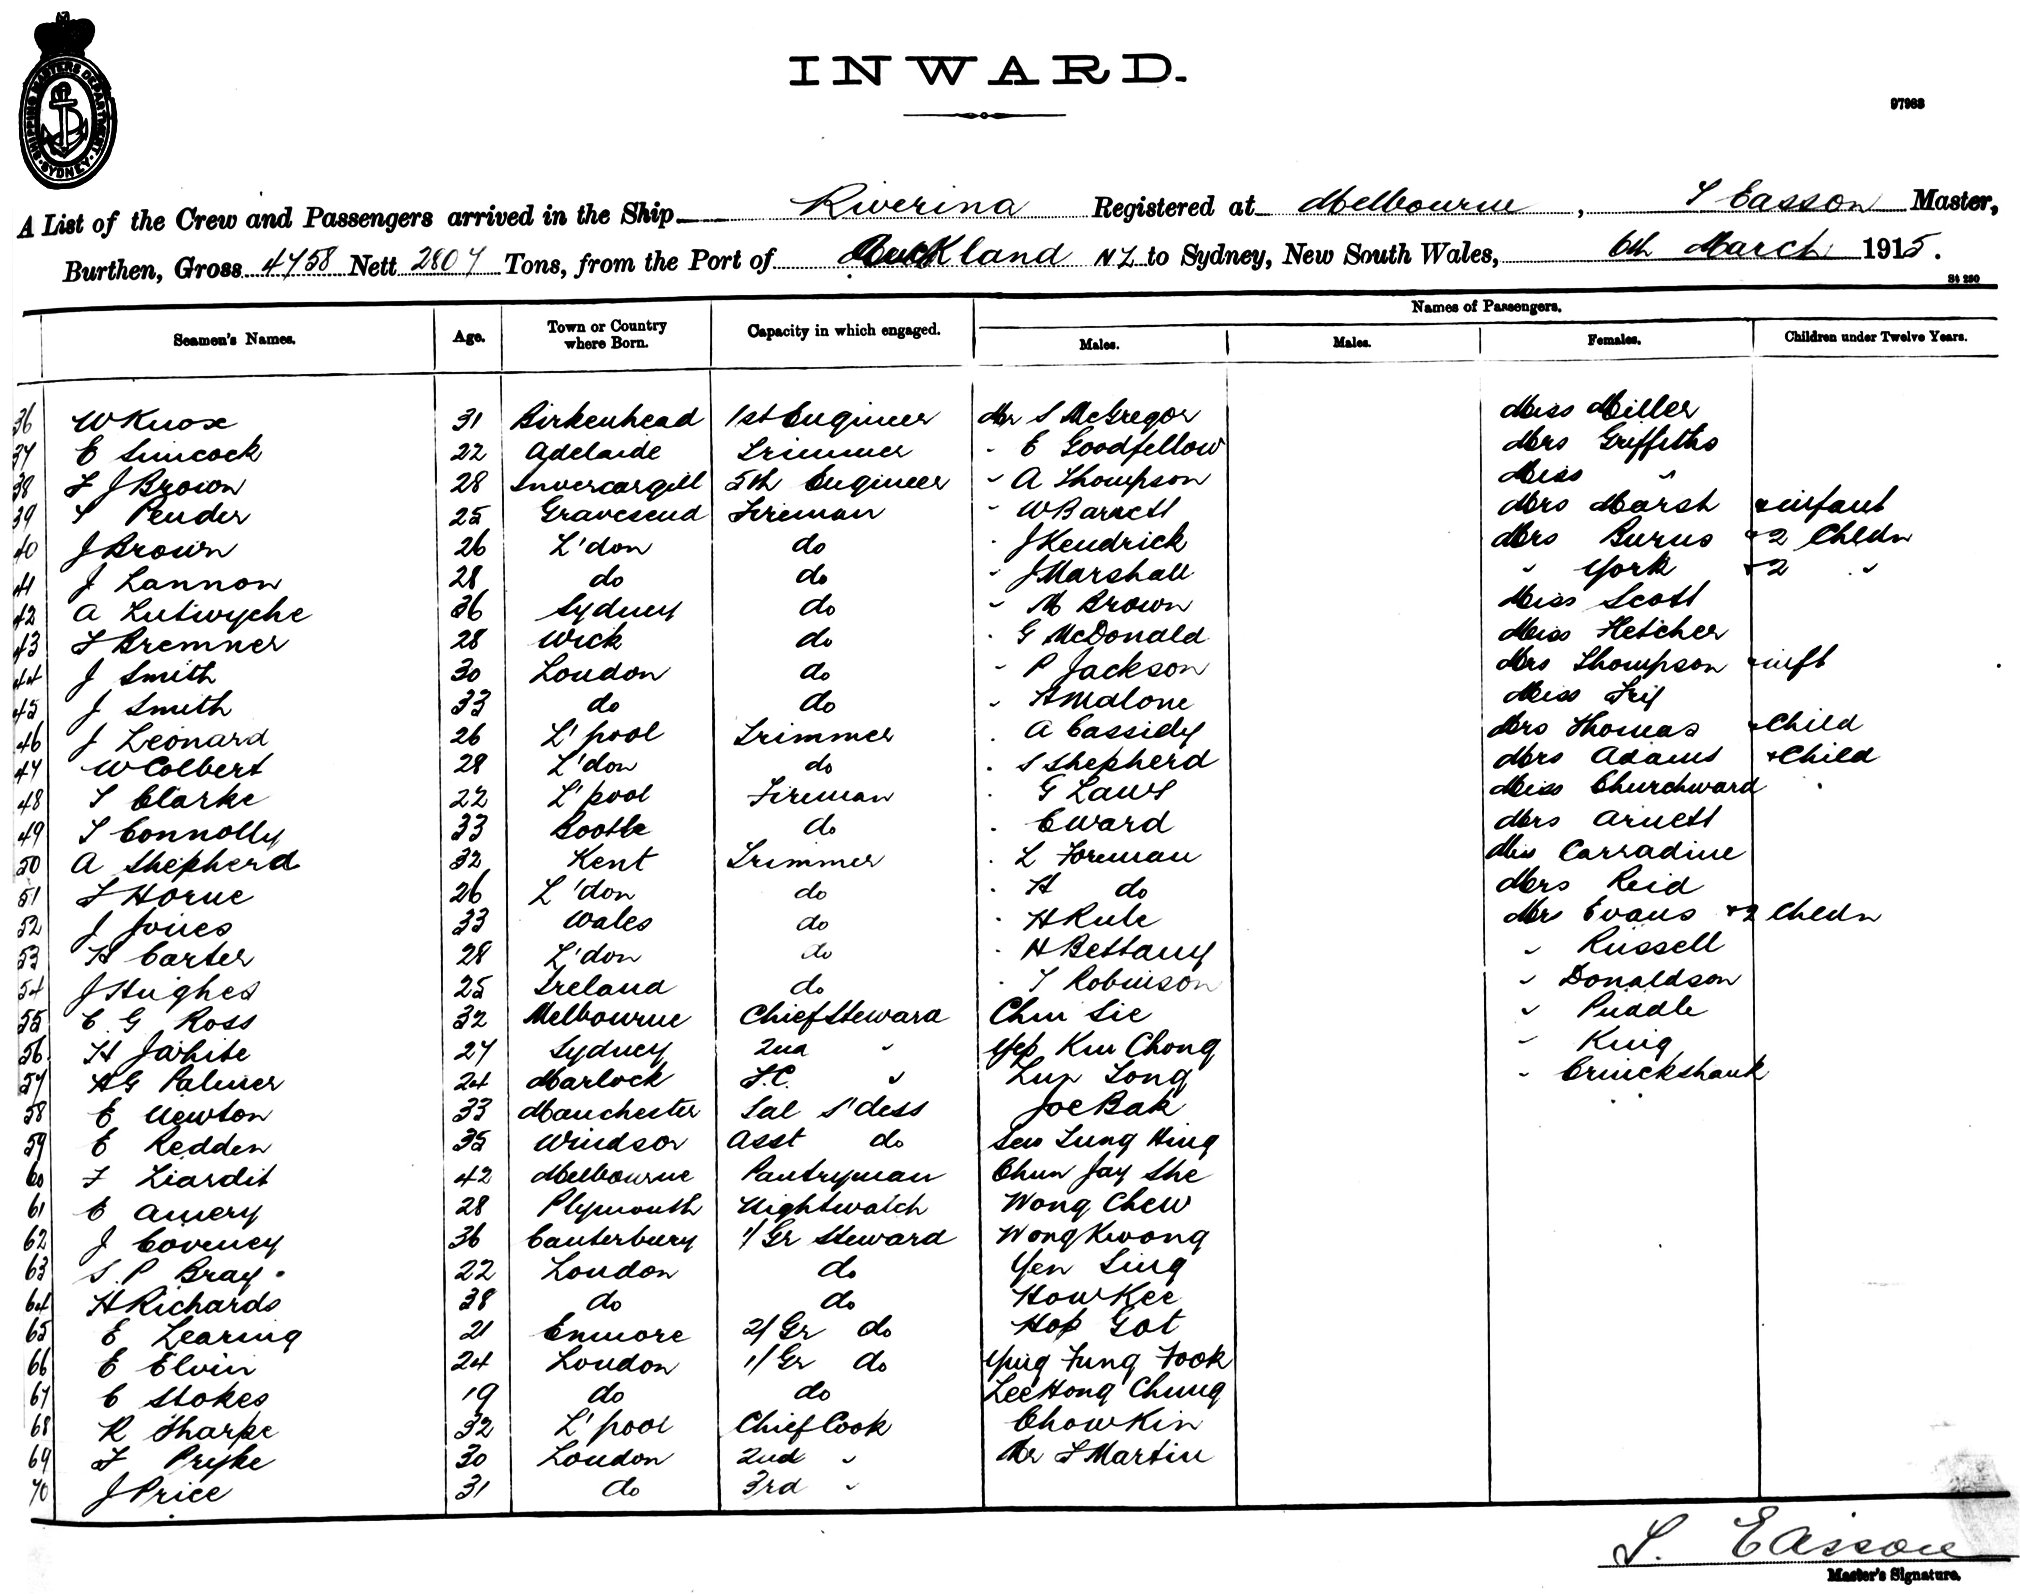 SHIPPING MASTERS DEPARTMENT · SYDNEY ·
INWARD.
97983
A List of the Crew and Passengers arrived in the Ship Riverina Registered at Melbourne, S Easson Master,
Burthen, Gross 4758 Nett 2807 Tons, from the Port of Auckland NZ to Sydney, New South Wales, 6th March 1915.
St 290
Names of Passengers.
Seamen's Names. Age. Town or Country where Born. Capacity in which engaged. Males. Males. Females. Children under Twelve Years.
36 W Knox 31 Birkenhead 1st Engineer Mr S McGregor Miss Miller
37 E Simcock 22 Adelaide Trimmer " E Goodfellow Mrs Griffiths
38 F J Brown 28 Invercargill 5th Engineer " A Thompson Miss "
39 Pender 25 Gravesend Fireman " W Barnett Mrs Marsh & infant
40 J Brown 26 L'don do " J Kendrick Mrs Burns & 2 Chldn
41 J Lannon 28 do do " J Marshall " York & 2 "
42 A Lutwyche 36 Sydney do " M Brown Miss Scott
43 F Bremner 28 Wick do " G McDonald Miss Fletcher
44 J Smith 30 London do " P Jackson Mrs Thompson & inft
45 J Smith 33 do do " H Malone Miss
46 J Leonard 26 L'pool Trimmer " A Cassidy Mrs Thomas & Child
47 W Colbert 28 L'don do " S Shepherd Mrs Adams & Child
48 T Clarke 22 L'pool Fireman " G Laws Miss Churchward
49 T Connolly 33 Bootle do " E Ward Mrs Arnett
50 A Shepherd 32 Kent Trimmer " L Foreman Miss Carradine
51 F Horne 26 L'don do " H do Mrs Reid
52 J Jones 33 Wales do " H Rule Mrs Evans & 2 Chldn
53 H Carter 28 L'don do " H Bettany " Russell
54 J Hughes 25 Ireland do " T Robinson " Donaldson
55 C G Ross 32 Melbourne Chief Steward Chin Sie " Puddle
56 H J White 27 Sydney 2nd " Yep Kim Chong " King
57 H G Palmer 24 Marlock T.C. " Lun Tong " Cruickshank
58 E Newton 33 Manchester Sal S'dess Joe Bak
59 E Redden 35 Windsor Asst do Lung Hing
60 F Liardit 42 Melbourne Pantryman Chun Jay She
61 C Amery 28 Plymouth Nightwatch Wong Chew
62 J Coveney 36 Canterbury 1/Gr Steward Wong Kwong
63 S. P Bray 22 London do Yen Sing
64 H Richards 38 do do How Kee
65 E Learing 21 Enmore 2/Gr do Hop Got
66 E Elvin 24 London 1/Gr do Ying Fung Fook
67 C Stokes 19 do do Lee Hong Chung
68 R Tharpe 32 L'pool Chief Cook Chow Kin
69 F Pryke 30 London 2nd " Mr S Martin
70 J Price 31 do 3rd "
S. Easson
Master's Signature.